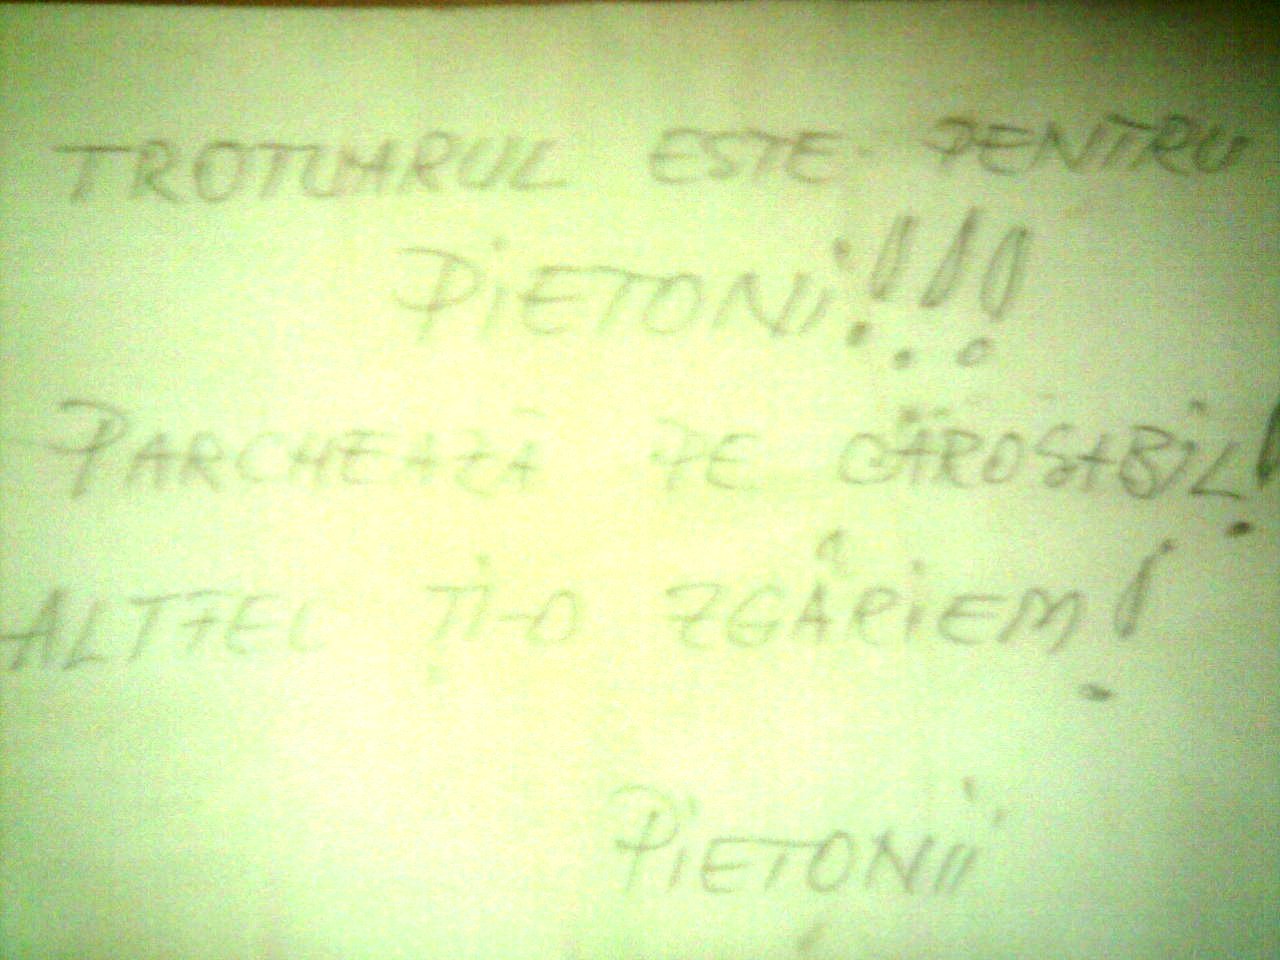 TROTUARUL ESTE PENTRU
PIETONI!!!
PARCHEAZĂ PE CAROSABIL!
ALTFEL ȚI-O ZGÂRIEM!
PIETONII